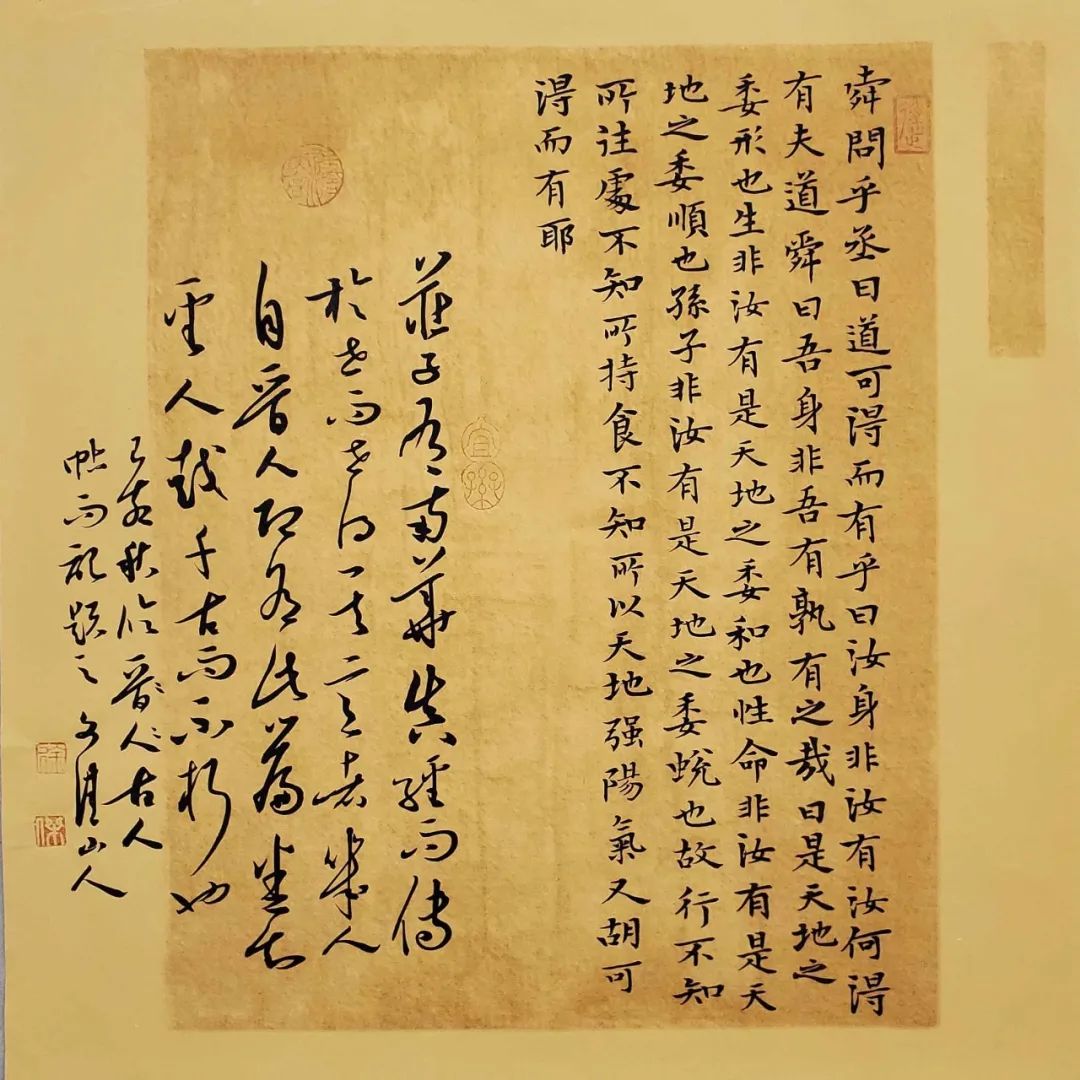 舜問乎丞曰道可得而有乎曰汝身非汝有汝何得
有夫道舜曰吾身非吾有孰有之哉曰是天地之
委形也生非汝有是天地之委和也性命非汝有是天
地之委順也孫子非汝有是天地之委蛻也故行不知
所往處不知所持食不知所味天地强陽氣又胡可
得而有耶
莊子南華真經而傳
於世而世得一其二三者幾人
自晉人
聖人越千古而不朽也
己亥秋臨晉人古人
帖而記題之山人